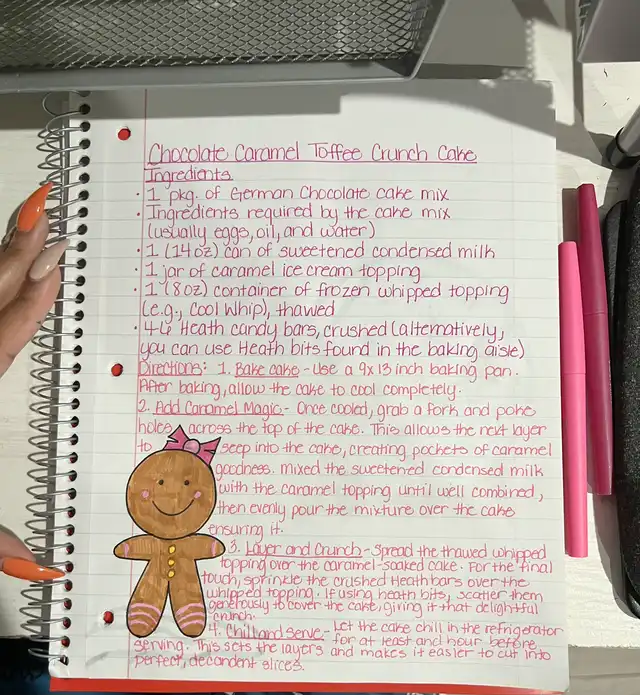 Chocolate Caramel Toffee Crunch Cake
Ingredients
• 1 pkg. of German Chocolate cake mix
• Ingredients required by the cake mix
(usually eggs, oil, and water)
• 1 (14oz) can of sweetened condensed milk
• 1 jar of caramel ice cream topping
• 1 (8oz) container of frozen whipped topping
(e.g., Cool Whip), thawed
• 4-6 Heath candy bars, crushed (alternatively,
you can use Heath bits found in the baking aisle)
Directions: 1. Bake cake - Use a 9x13 inch baking pan.
After baking, allow the cake to cool completely.
2. Add Caramel Magic - Once cooled, grab a fork and poke
holes across the top of the cake. This allows the next layer
to seep into the cake, creating pockets of caramel
goodness. mixed the sweetened condensed milk
with the caramel topping until well combined,
then evenly pour the mixture over the cake
ensuring it.
3. Layer and Crunch - Spread the thawed whipped
topping over the caramel-soaked cake. For the final
touch, sprinkle the crushed Heath bars over the
whipped topping. If using heath bits, scatter them
generously to cover the cake, giving it that delightful
crunch.
4. Chill and Serve - Let the cake chill in the refrigerator
for at least and hour before
serving. This sets the layers and makes it easier to cut into
perfect, decandent slices.